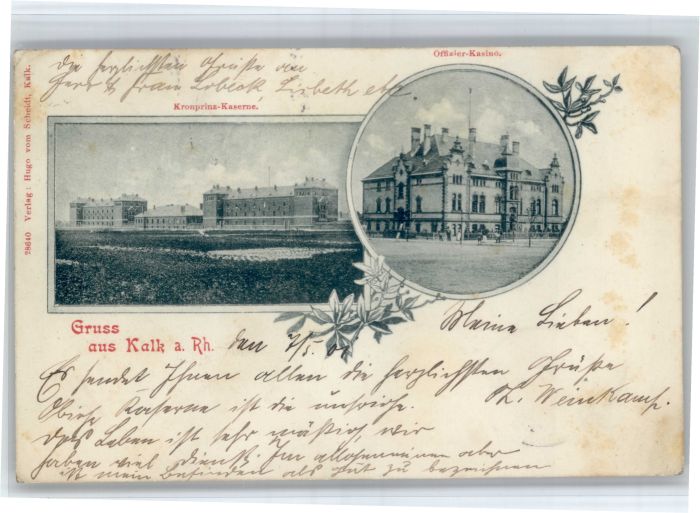 die herzlichsten Grüße an
Herr & Frau Lobeck Lisbeth etc
Offizier-Kasino.
Kronprinz-Kaserne.
28640 Verlag: Hugo vom Scheidt, Kalk.
Gruss
aus Kalk a. Rh. den 7/5.
Meine Lieben!
Es sendet Ihnen allen die herzlichsten Grüße
Obige Kaserne ist die unsrige. Weinkamp.
das Leben ist sehr mäßig, wir
haben viel Dienst. Im allgemeinen aber
ist mein Befinden als gut zu bezeichnen